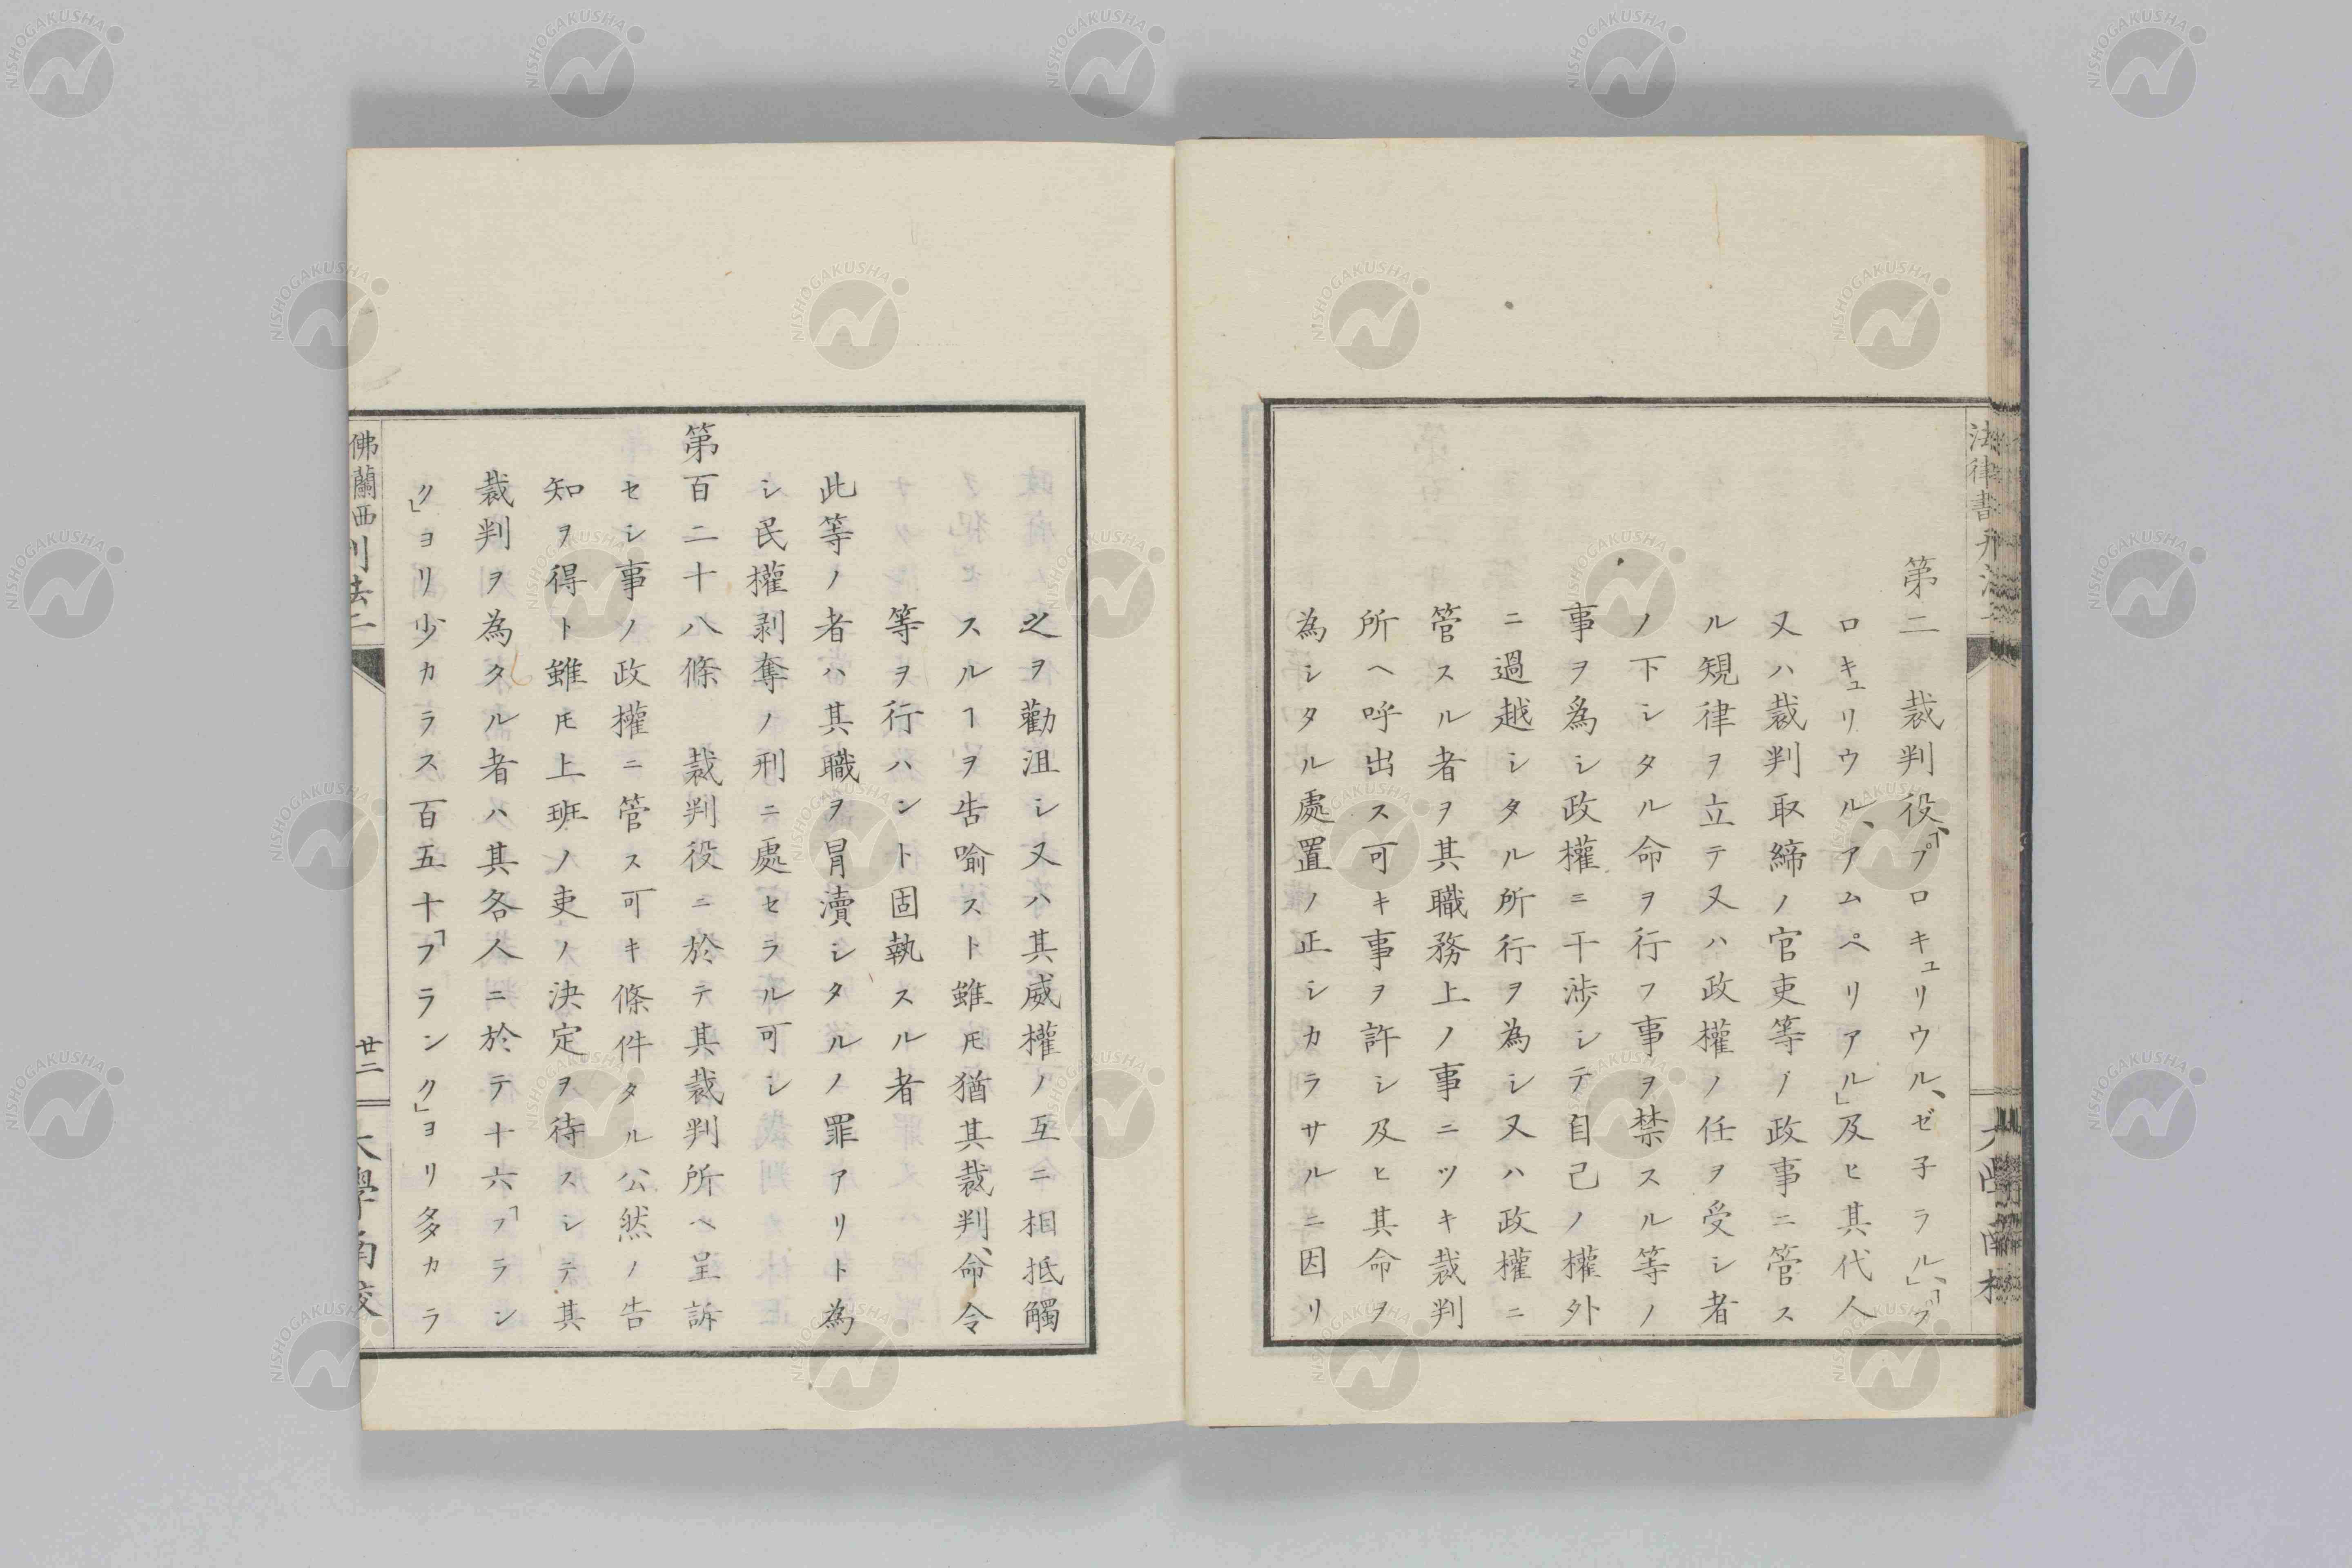 第二 裁判役、「プロキュリウル、ゼ子ラル」、「プ
ロキュリウル、アムペリアル」及ヒ其代人
又ハ裁判取締ノ官吏等ノ政事ニ管ス
ル規律ヲ立テ又ハ政權ノ任ヲ受シ者
ノ下シタル命ヲ行フ事ヲ禁スル等ノ
事ヲ爲シ政權ニ干渉シテ自己ノ權外
ニ過越シタル所行ヲ為シ又ハ政權ニ
管スル者ヲ其職務上ノ事ニツキ裁判
所ヘ呼出ス可キ事ヲ許シ及ヒ其命ヲ
為シタル處置ノ正シカラサルニ因リ
之ヲ勸沮シ又ハ其威權ノ互ニ相抵觸
スルヿヲ告喻スト雖𪜈猶其裁判、命令
等ヲ行ハント固執スル者
此等ノ者ハ其職ヲ冐瀆シタルノ罪アリト為
シ民權剥奪ノ刑ニ處セラル可シ
第百二十八條 裁判役ニ於テ其裁判所ヘ呈訴
セシ事ノ政權ニ管ス可キ條件タル公然ノ告
知ヲ得ト雖𪜈上班ノ吏ノ決定ヲ待スシテ其
裁判ヲ為タル者ハ其各人ニ於テ十六「フラン
ク」ヨリ少カラス百五十「フランク」ヨリ多カラ
佛蘭西刑法二
廿二
大學南校